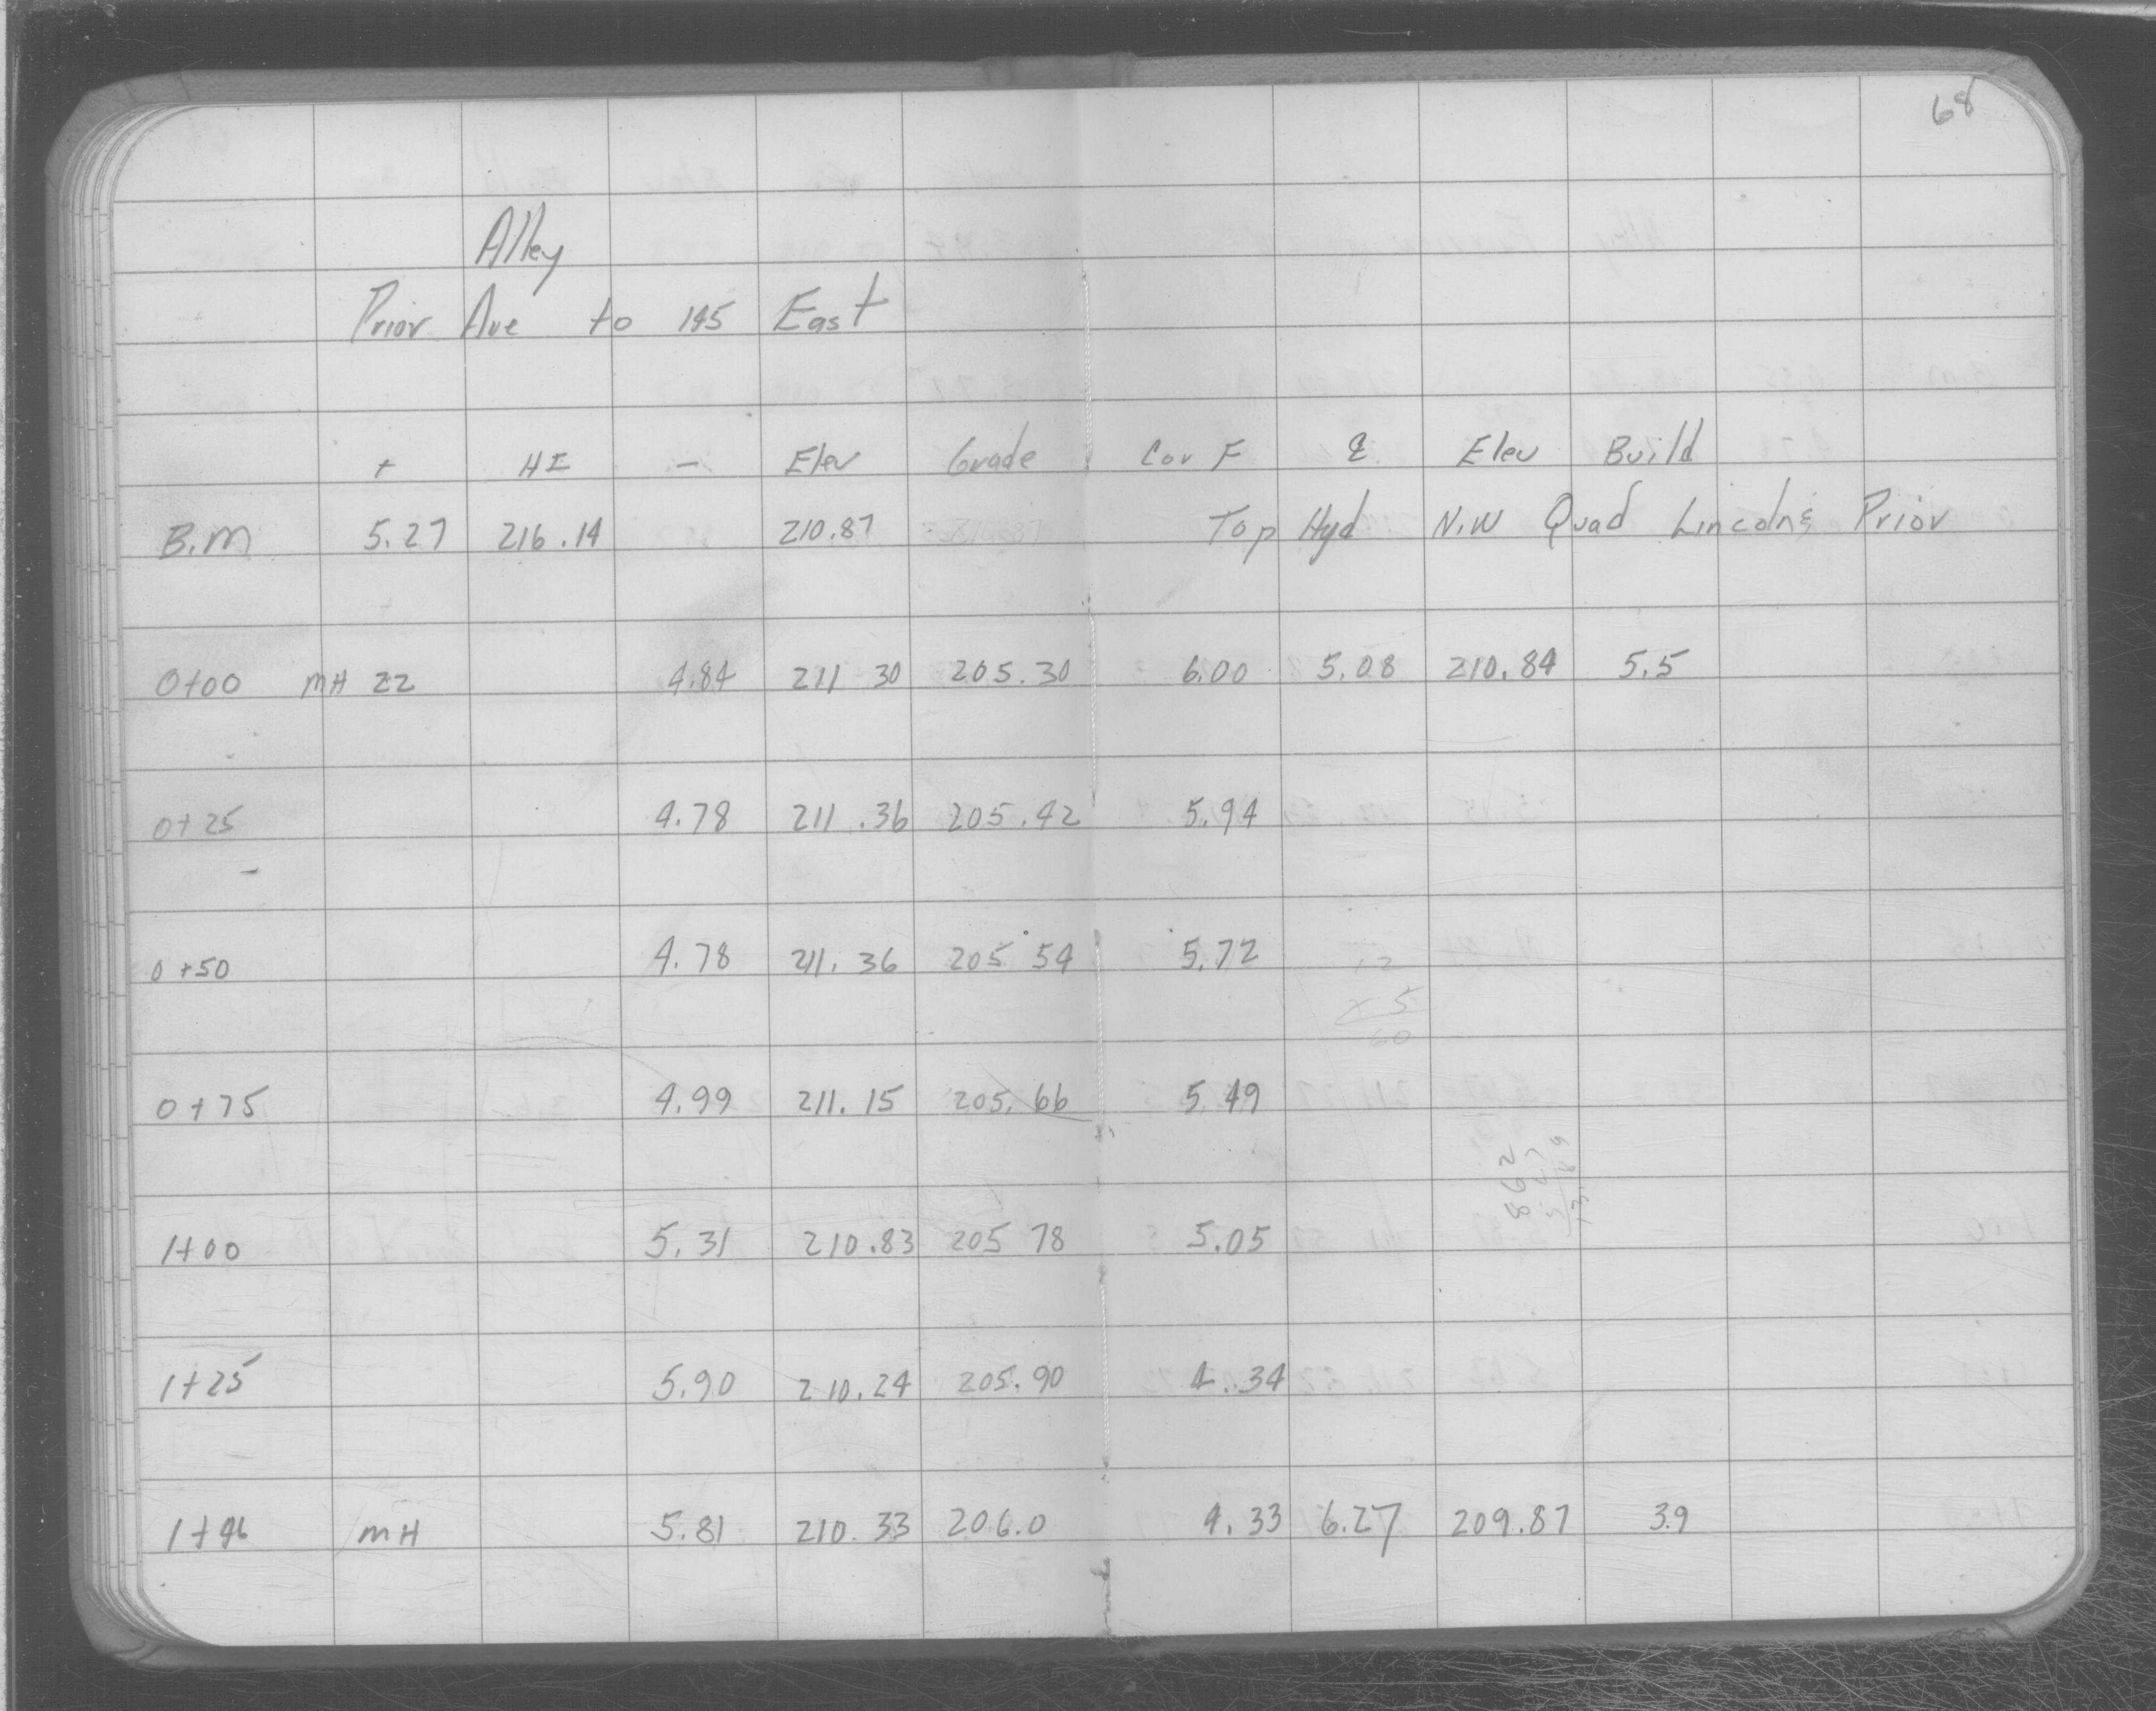 68
Alley
Prior Ave to 145 East
+ HI - Elev Grade Cor F ℄ Elev Build
B.M 5.27 216.14 210.87 Top Hyd N.W Quad Lincoln & Prior
0+00 MH 22 4.84 211 30 205.30 6.00 5.08 210.84 5.5
0+25 4.78 211.36 205.42 5.94
0+50 4.78 211.36 205 54 5.72
x 5
60
0+75 4.99 211.15 205.66 5.49
862
1+00 5.31 210.83 205 78 5.05
1+25 5.90 210.24 205.90 4.34
1+46 MH 5.81 210.33 206.0 4.33 6.27 209.87 3.9